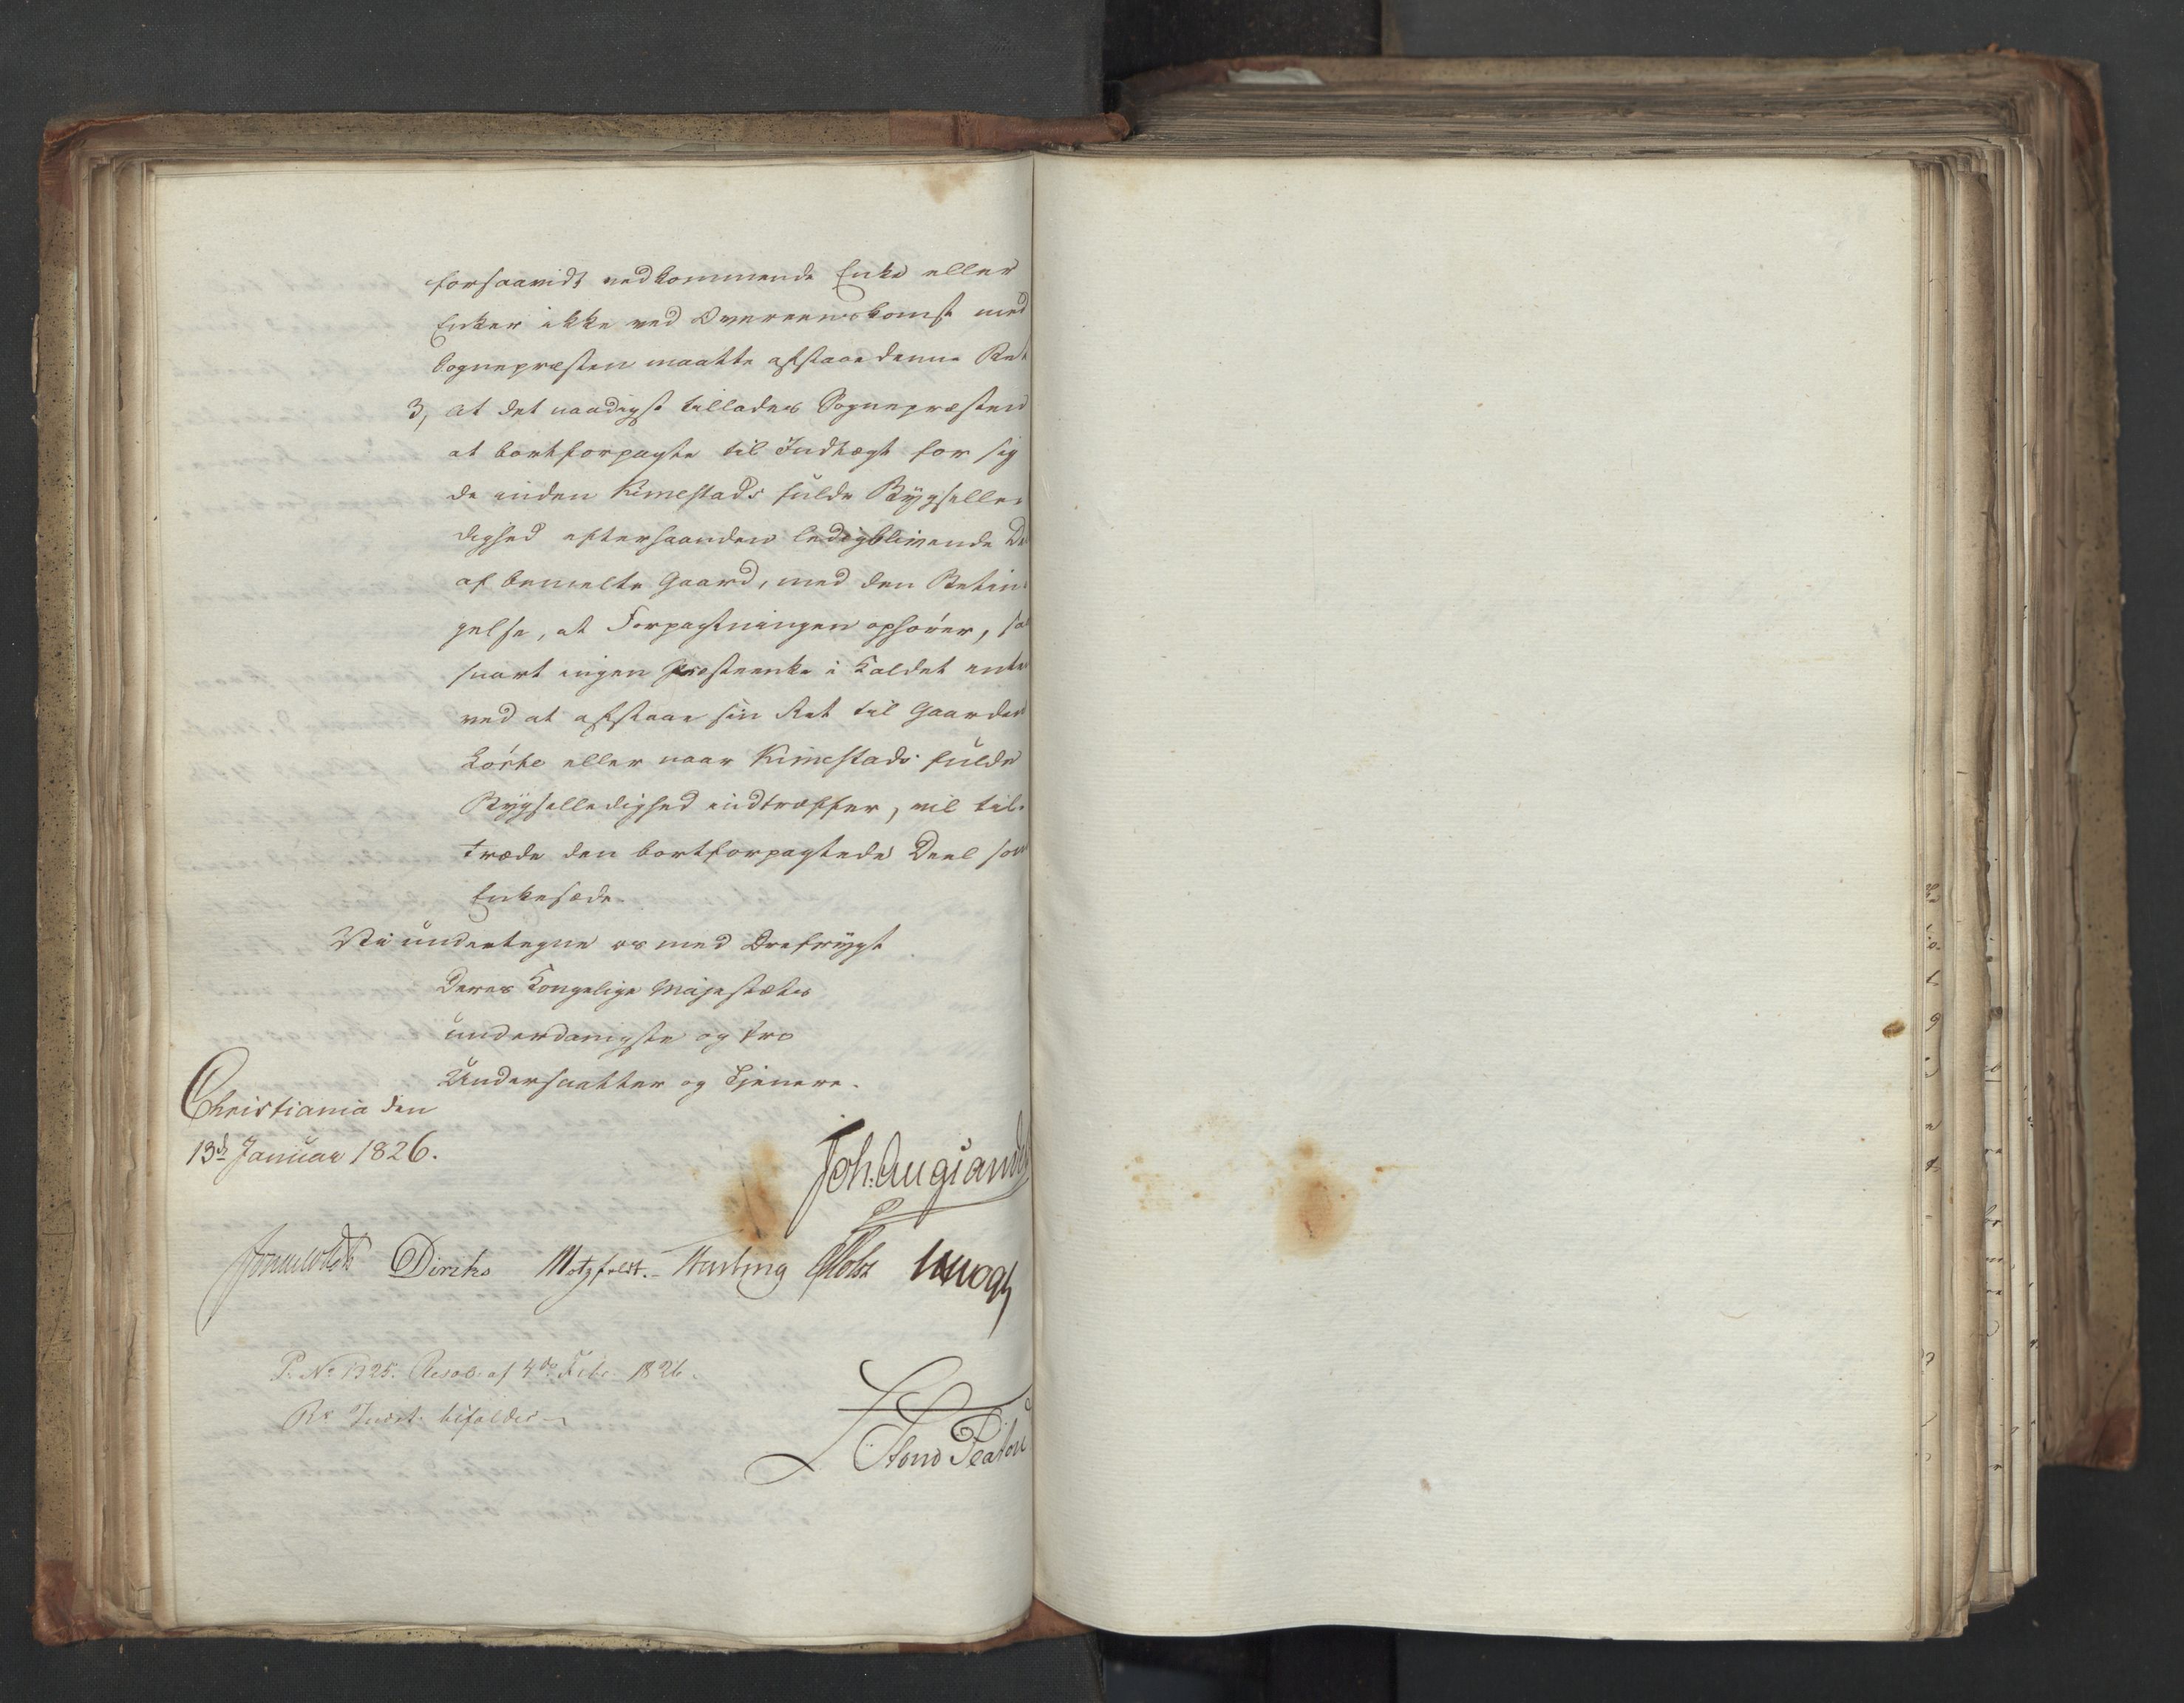 forsaavidt vedkommende Enke eller
Enker ikke ved Overeenskomst med
Sognepræsten maatte afstaae denne Ret
3, at det naadigst tillades Sognepræsten
at bortforpagte til Indtægt for sig
de inden Kimestads fulde Bygselle-
dighed efterhaanden ledigblivende De
af bemelte Gaard, med den Betin-
gelse, at Forpagtningen ophører, saa
snart nogen Præsteenke i Kaldet enten
ved at afstaae sin Ret til Gaarden
eller naar Kimestads fulde
Bygselledighed indtræffer, vil til-
træde den bortforpagtede Deel som
Enkesæde.
Vi undertegne os med Ærefrygt
Deres Kongelige Majestæts
underdanigste og tro
Undersaatter og Tjenere.
Christiania den
13de Januar 1826.
Joh. Aug. Sandels
Sommerhielm Diriks Motzfeldt. Fasting PHolst
P. No 1325. Resol. af 4de Febr. 1826.
Rs Indst. bifaldes